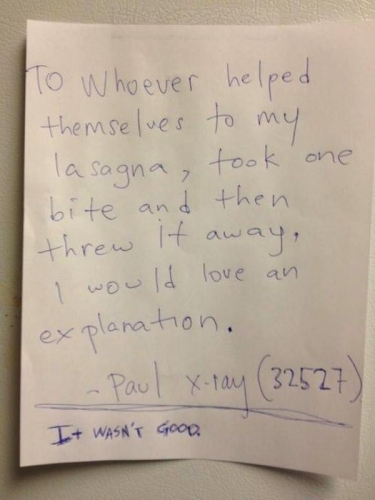 To Whoever helped
themselves to my
lasagna, took one
bite and then
threw it away,
I would love an
explanation.
- Paul X-ray (32527)
It WASN'T GOOD.